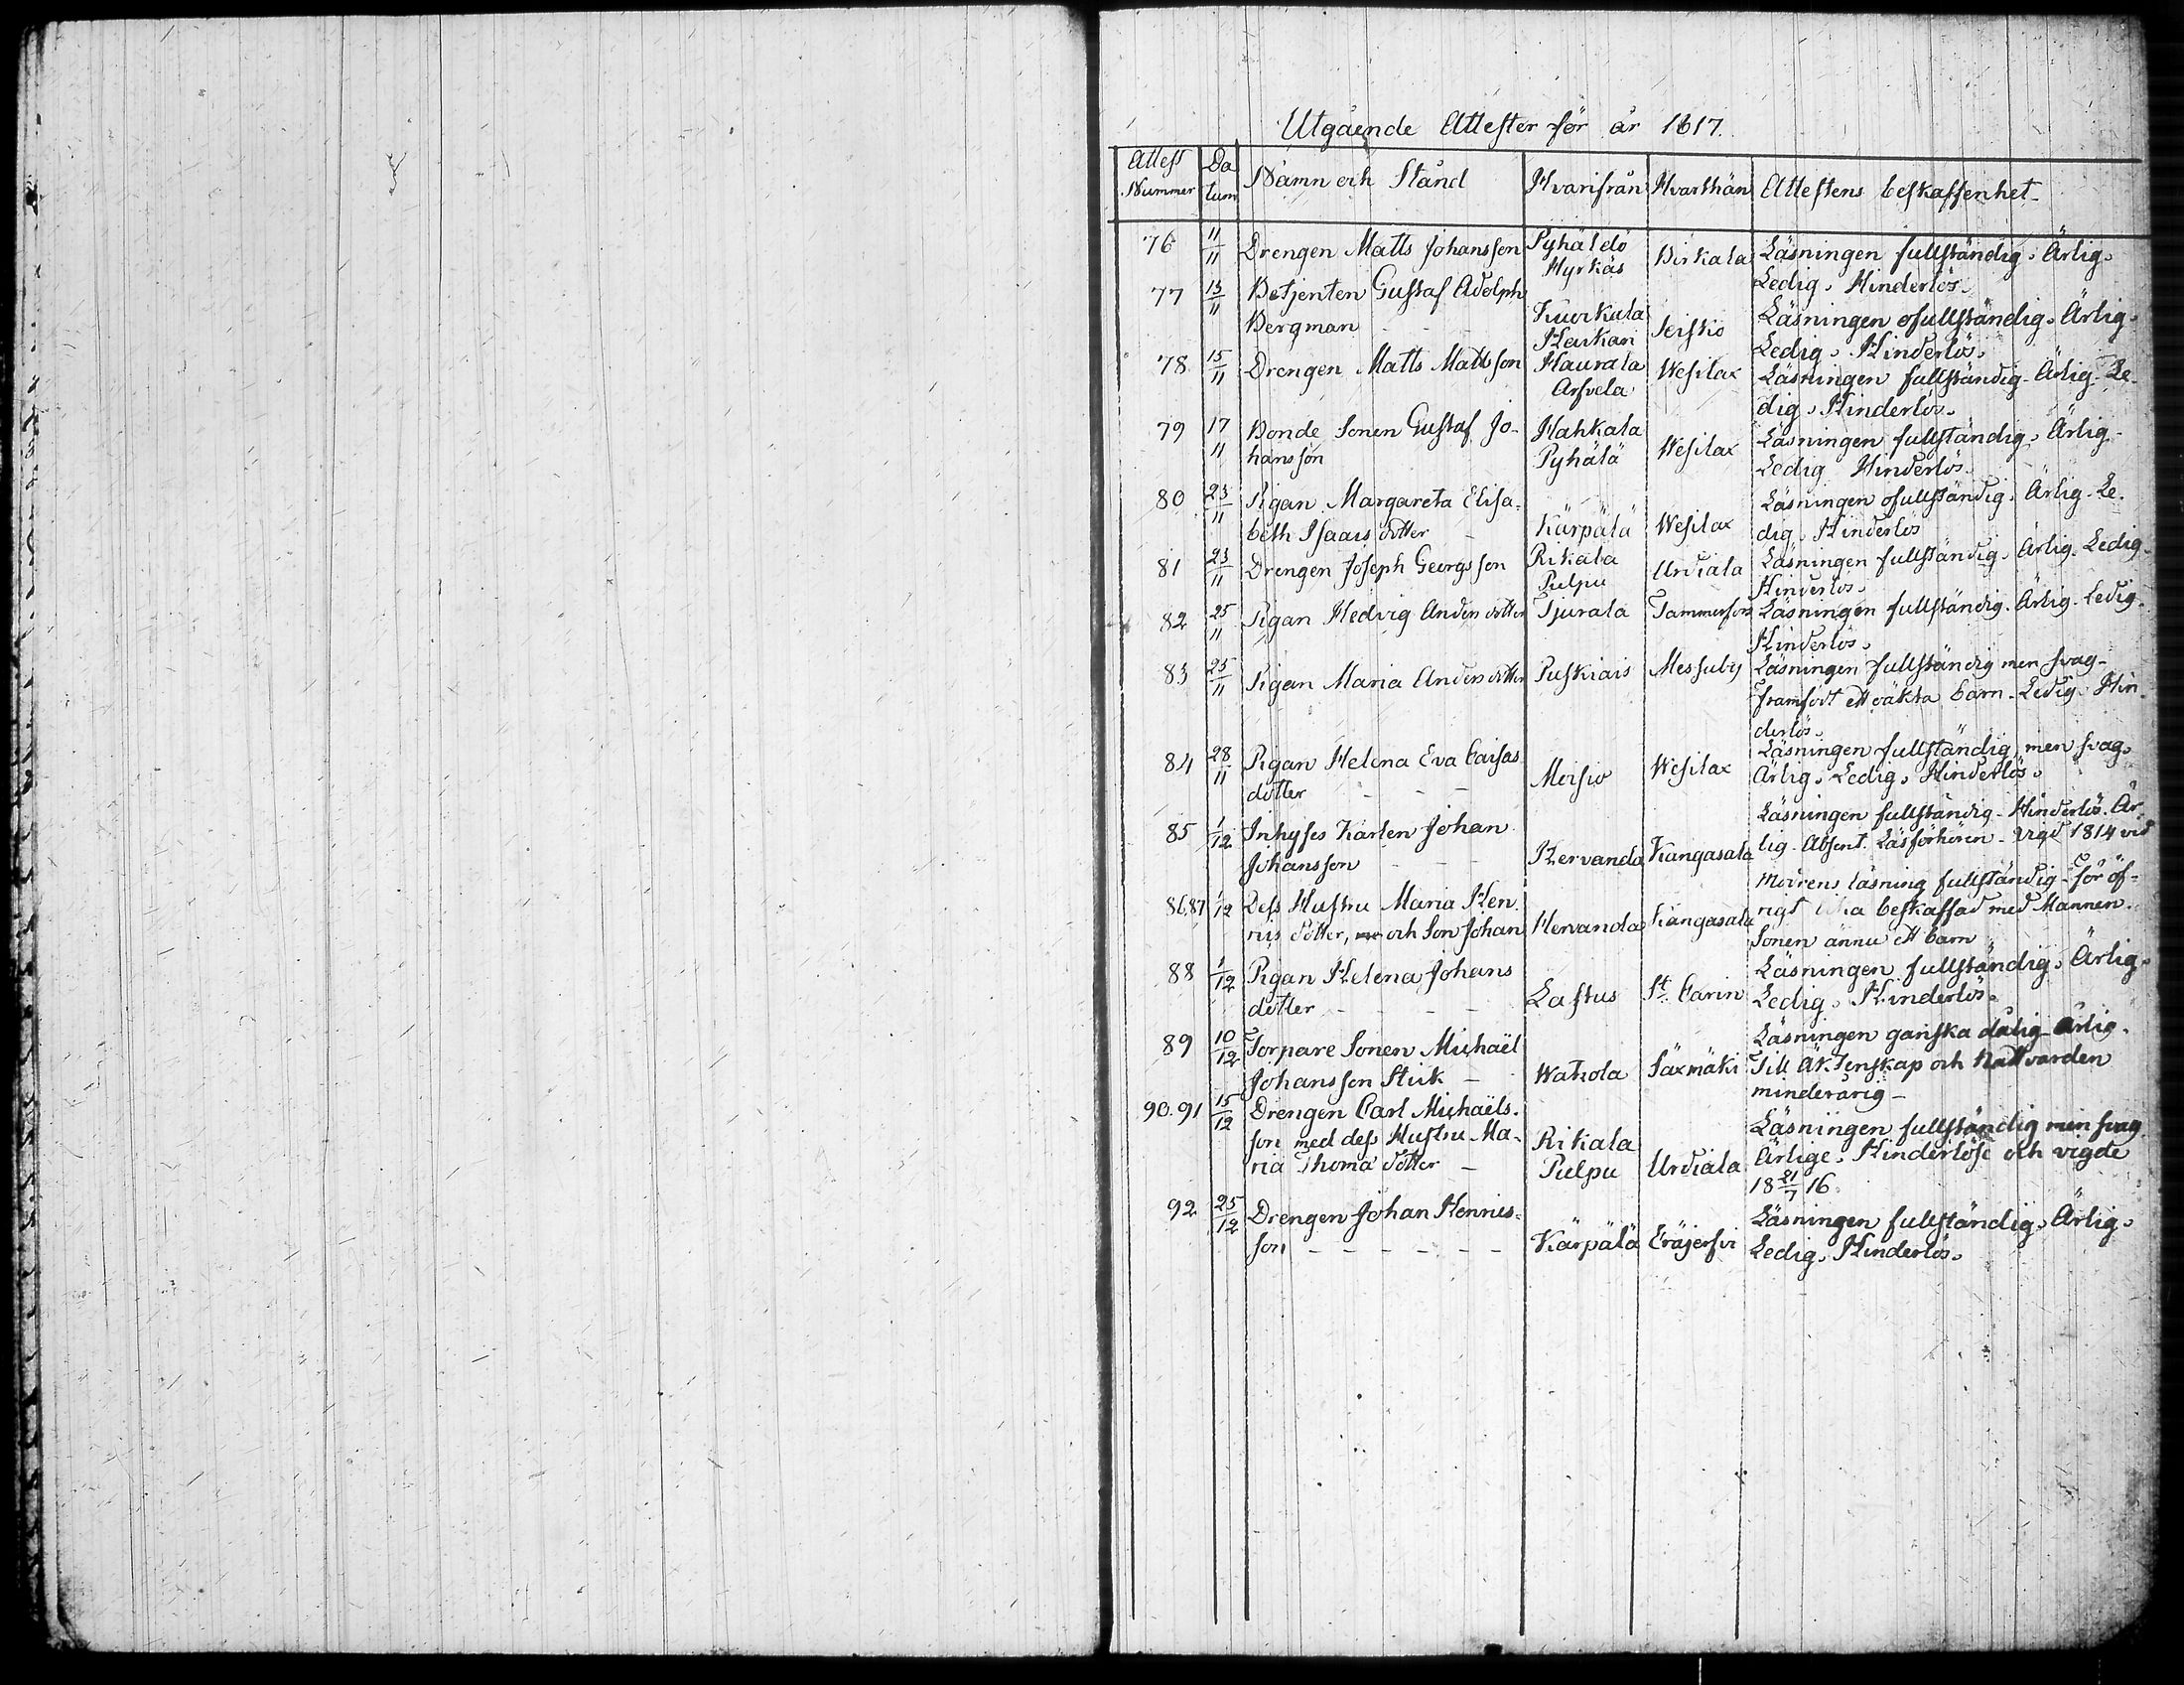 Utgående Attester för år 1817.
Attest Nummer
Datum
Namn och Stånd
Hvarifrån
Hvarthän
Attestens beskaffenhet
76 11/11 Drengen Matts Johansson Pyhäldö Hyrkäs Birkala Läsningen fullständig. Ärlig.
Ledig. Hinderlös.
77 13/11 Betjenten Gustaf Adolph Kuurkala Läsningen ofullständig. Ärlig.
Bergman Heikari Ledig. Hinderlös.
78 15/11 Drengen Matts Mattsson Haurala Wesilax Läsningen fullständig. Ärlig. Le-
Arfvela dig. Hinderlös.
79 17/11 Bonde Sonen Gustaf Jo- Hahkala Wesilax Läsningen fullständig. Ärlig.
hansson Pyhälä Ledig Hinderlös.
80 23/11 Pigan Margareta Elisa- Läsningen ofullständig. Ärlig. Le-
beth Isaacs dotter Kärpälä Wesilax dig. Hinderlös
81 23/11 Drengen Joseph Georgsson Rikala Pulpu Urdiala Läsningen fullständig. Ärlig. Ledig.
Hinderlös.
82 25/11 Pigan Hedvig Anders dotter Tjurala Tammerfors Läsningen fullständig. Ärlig. Ledig.
Hinderlös.
83 25/11 Pigan Maria Anders dotter Puskiais Messuby Läsningen fullständig men svag.
Framfödt ett oäkta barn. Ledig. Hin-
derlös.
84 28/11 Pigan Helena Eva Caisas Moisio Wesilax Läsningen fullständig, men svag.
dotter Ärlig. Ledig. Hinderlös.
85 1/12 Inhyses Karlen Johan Läsningen fullständig. Hinderlös. Är-
Johansson Hervanda Kangasala lig. Absent. Läsförhören. Vigd 1814 vid
86.87 1/12 Dess Hustru Maria Hen- Modrens läsning fullständig. För öf-
ris dotter, och Son Johan Hervanda Kangasala rigt lika beskaffad med Mannen.
Sonen ännu ett barn
88 1/12 Pigan Helena Johans Läsningen fullständig. Ärlig.
dotter Lastus St. Carin Ledig. Hinderlös.
89 10/12 Torpare Sonen Michaël Läsningen ganska dålig. Ärlig.
Johansson Stick Wahola Säxmäki Till Äktenskap och Nattvarden
minderårig
90.91 15/12 Drengen Carl Michaëls-
son med dess Hustru Ma- Rikala Läsningen fullständig men svag.
ria Thoma dotter Pulpu Urdiala Ärlige. Hinderlöse och vigde
18 21/7 16.
92 25/12 Drengen Johan Henrics- Läsningen fullständig. Ärlig.
son Kärpälä Eräjerfvi Ledig. Hinderlös.